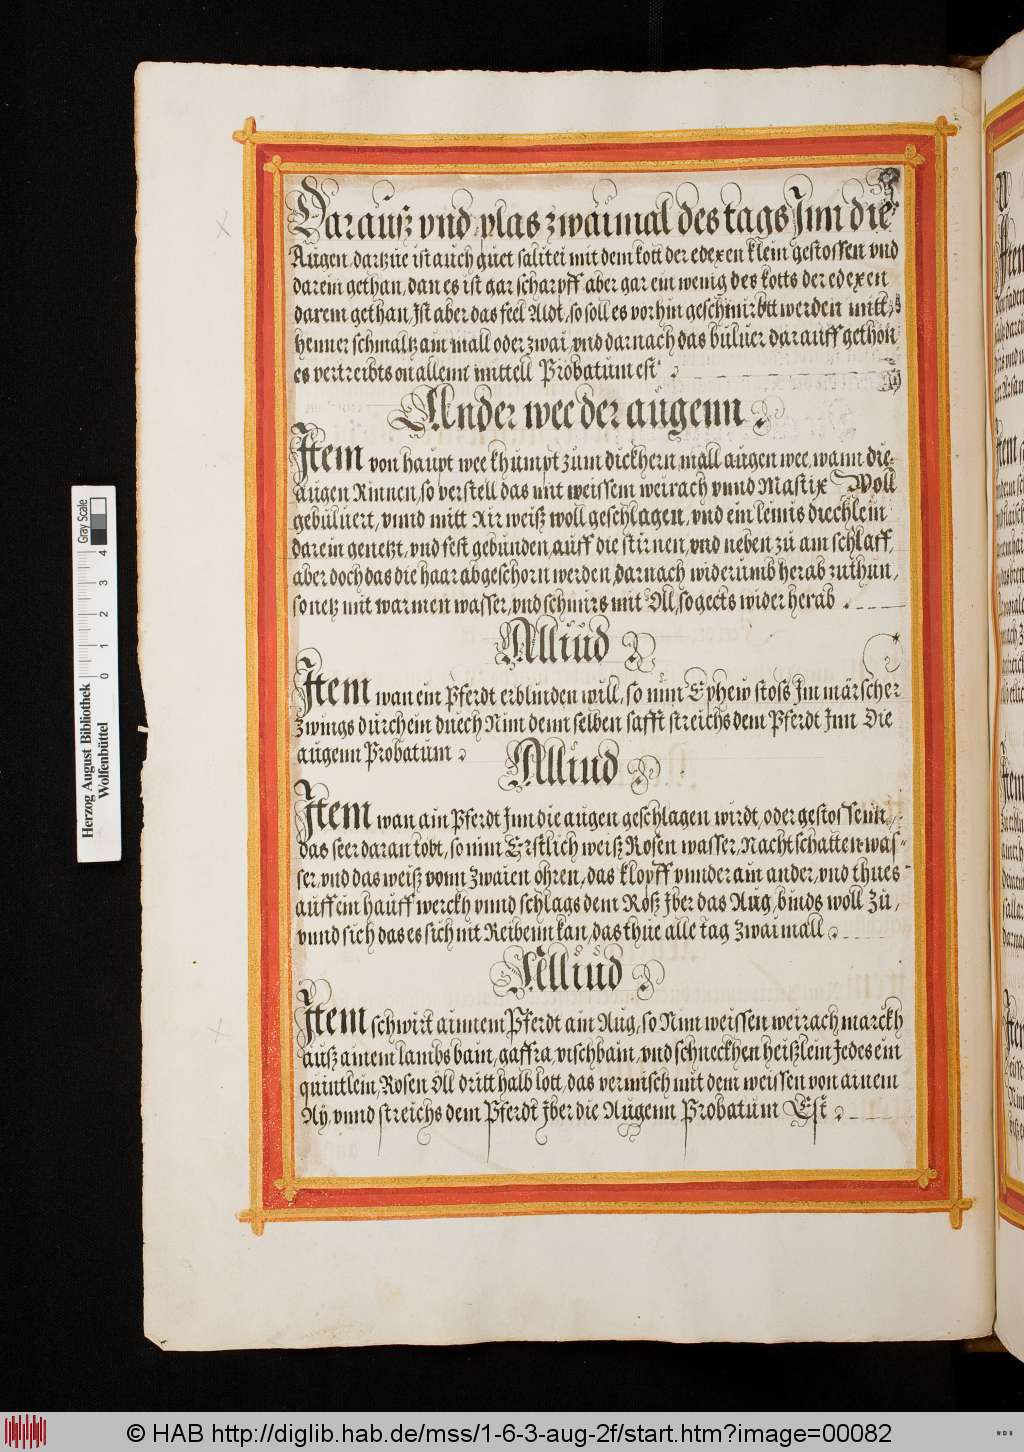 Darauß vnd plas zwaimal des tags Jnn die
Augen, dartzue ist auch guet salitei mit dem kott der edexen klein gestossen vnd
darein gethan, dan es ist gar scharpff aber gar ein wenig des kotts der edexen
darein gethan, Jst aber das feel Aldt, so soll es vorhin geschmirbtt werden mitt
henner schmaltz ain mall oder zwai, vnd darnach das buluer darauff gethon
es vertreibts on allenn mittell Probatum est
Ander wee der augenn
Jtem von haupt wee khumpt zum dickhern mall augen wee, wann die
augen Rinnen, so verstell das mit weissem weirach vnnd Mastix Woll
gebuluert, vnnd mitt Air weiß woll geschlagen, vnd ein leinis diechlein
darein genetzt, vnd fest gebunden, auff die stirnen, vnd neben zu am schlaff,
aber doch das die haar abgeschorn werden, darnach widerumb herab zuthun,
so netz mit warmen wasser, vnd schmirs mit Öll, so geets wider herab
Alliud
Jtem wan ein Pferdt erblinden will, so nim Ephew stoß Jm märscher
Zwings durch ein duech Nim denn selben safft streichs dem Pferdt Jnn Die
augenn Probatum
Alliud
Jtem wan ain Pferdt Jnn die augen geschlagen wirdt, oder gestossenn,
das seer daran tobt, so nim Erstlich weiß Rosen wasser, Nachtschatten was-
ser, vnd das weiß vonn Zwaien öhren, das klopff vnnder ain ander, vnd thues
auff ein hauff werckh vnnd schlags dem Roß Jber das Aug, binds woll Zu,
vnnd sich das es sich nit Reibenn kan, das thue alle tag Zwaimall
Alliud
Jtem schwirt ainnem Pferdt ain Aug, so Nim weissen weirach marckh
auß ainem lambsbain, gaffra, vischbain, vnd schneckhen heißlein Jedes ein
quintlein, Rosen Öll dritt halb lott, das vermisch mit dem weissen von ainem
Aÿ, vnnd streichs dem Pferdt Jber die Augenn Probatum Est
Herzog August Bibliothek
Wolfenbüttel
0 1 2 3 4
Gray Scale
© HAB http://diglib.hab.de/mss/1-6-3-aug-2f/start.htm?image=00082